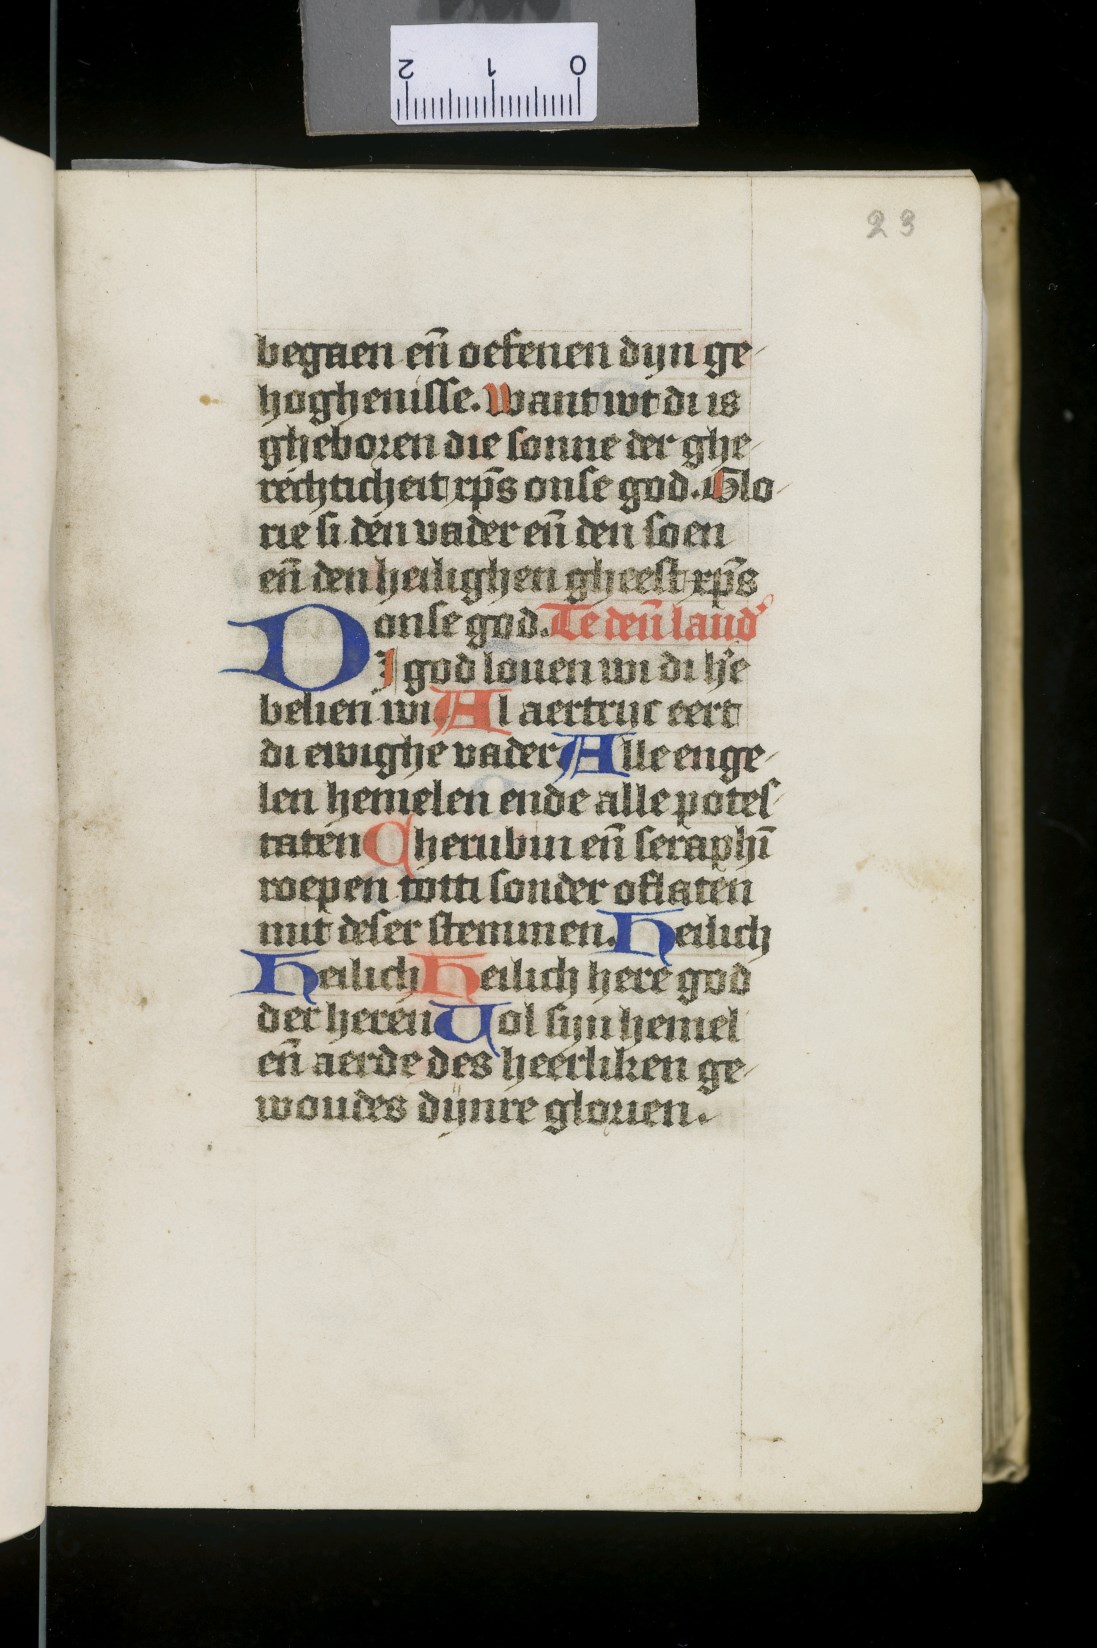 2 1 0
23
begaen en̄ oefenen dijn ge
hoghenisse. Want wt di is
gheboren die sonne der ghe
rechticheit xp̄s onse god. Glo
rie si den vader en̄ den soen
en̄ den heilighen gheest xp̄s
onse god. Te deū laud
DI god louen wi di he
belien wi Al aertryc eert
di ewighe vader Alle enge
len hemelen ende alle potes
taten Cherubin en̄ seraphī
roepen totti sonder oflaten
mit deser stemmen. Heilich
Heilich Heilich here god
der heren Uol sijn hemel
en̄ aerde des heerliken ge
woudes dijnre glorien.